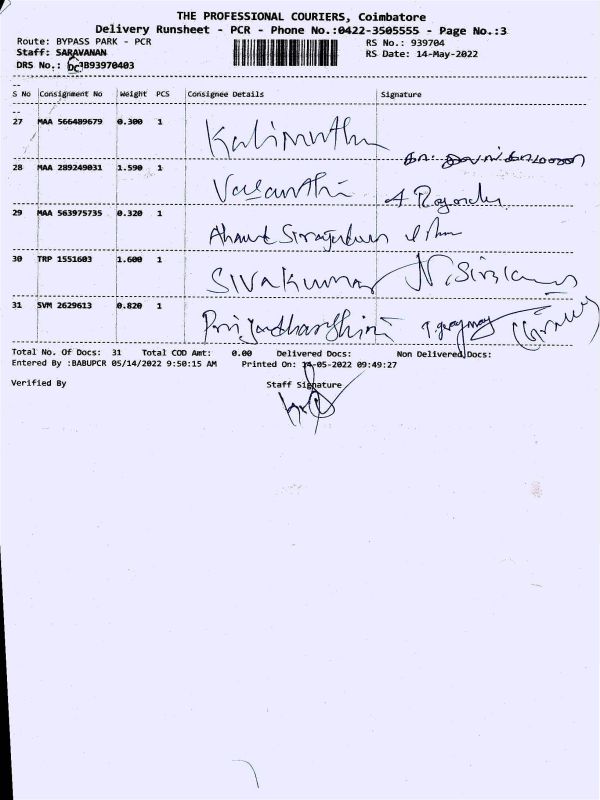 THE PROFESSIONAL COURIERS, Coimbatore
Delivery Runsheet - PCR - Phone No.:0422-3505555 - Page No.:3
Route: BYPASS PARK - PCR RS No.: 939704
Staff: SARAVANAN RS Date: 14-May-2022
DRS No.: DCJB93970403
S No Consignment No Weight PCS Consignee Details Signature
27 MAA 566489679 0.300 1 Kalimuthu
28 MAA 289249031 1.590 1 Vasanthi
29 MAA 563975735 0.320 1
30 TRP 1551603 1.600 1 Sivakumar
31 SVM 2629613 0.820 1 Priyandharshini
Total No. Of Docs: 31 Total COD Amt: 0.00 Delivered Docs: Non Delivered Docs:
Entered By :BABUPCR 05/14/2022 9:50:15 AM Printed On: 14-05-2022 09:49:27
Verified By Staff Signature